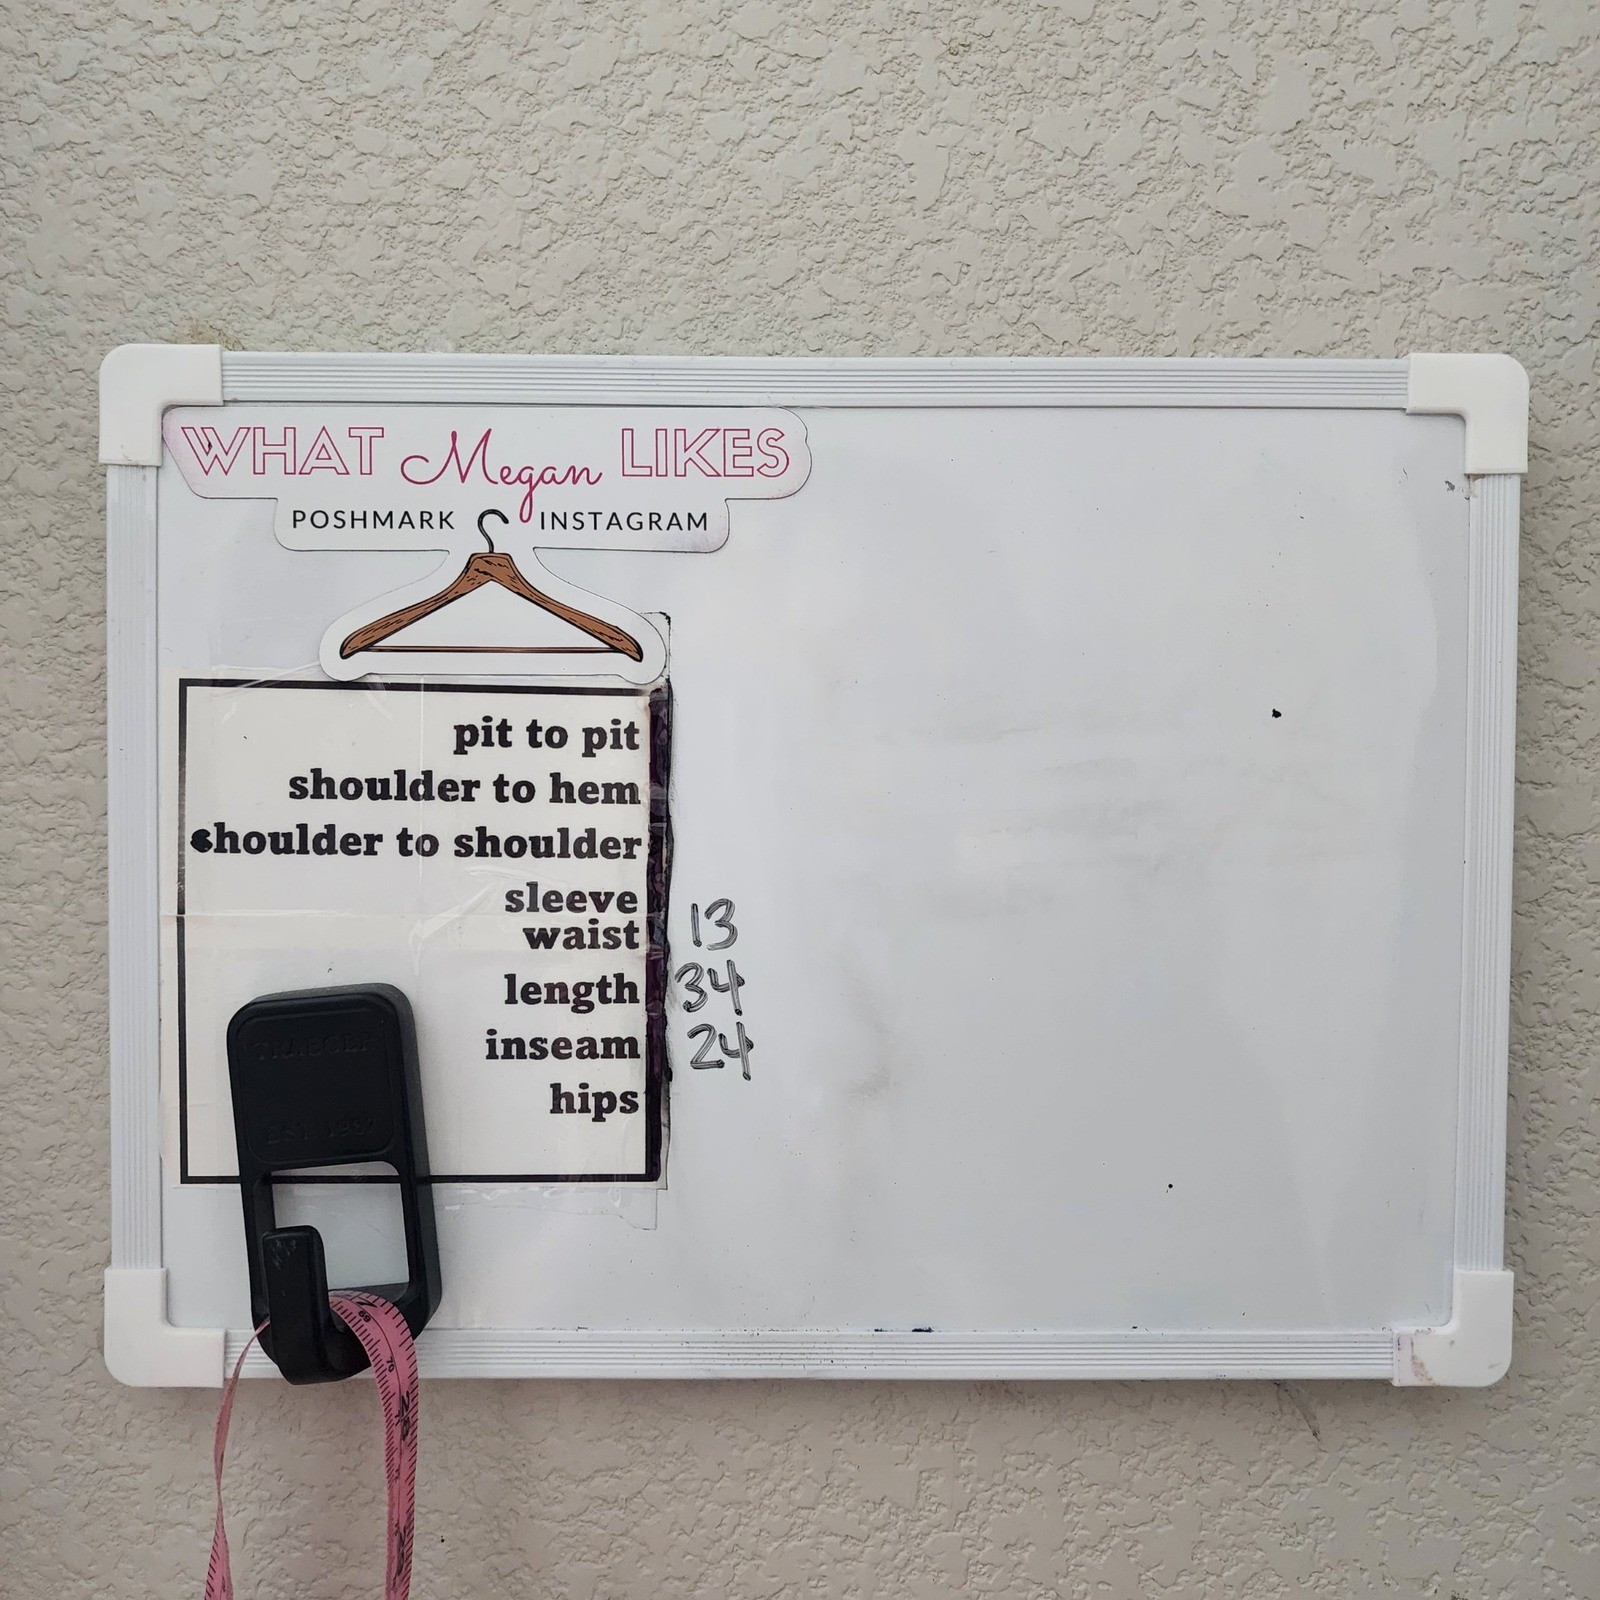 WHAT Megan LIKES
POSHMARK INSTAGRAM
pit to pit
shoulder to hem
shoulder to shoulder
sleeve
waist 13
length 34
inseam 24
hips
TRAEGER
EST. 1987
69
70